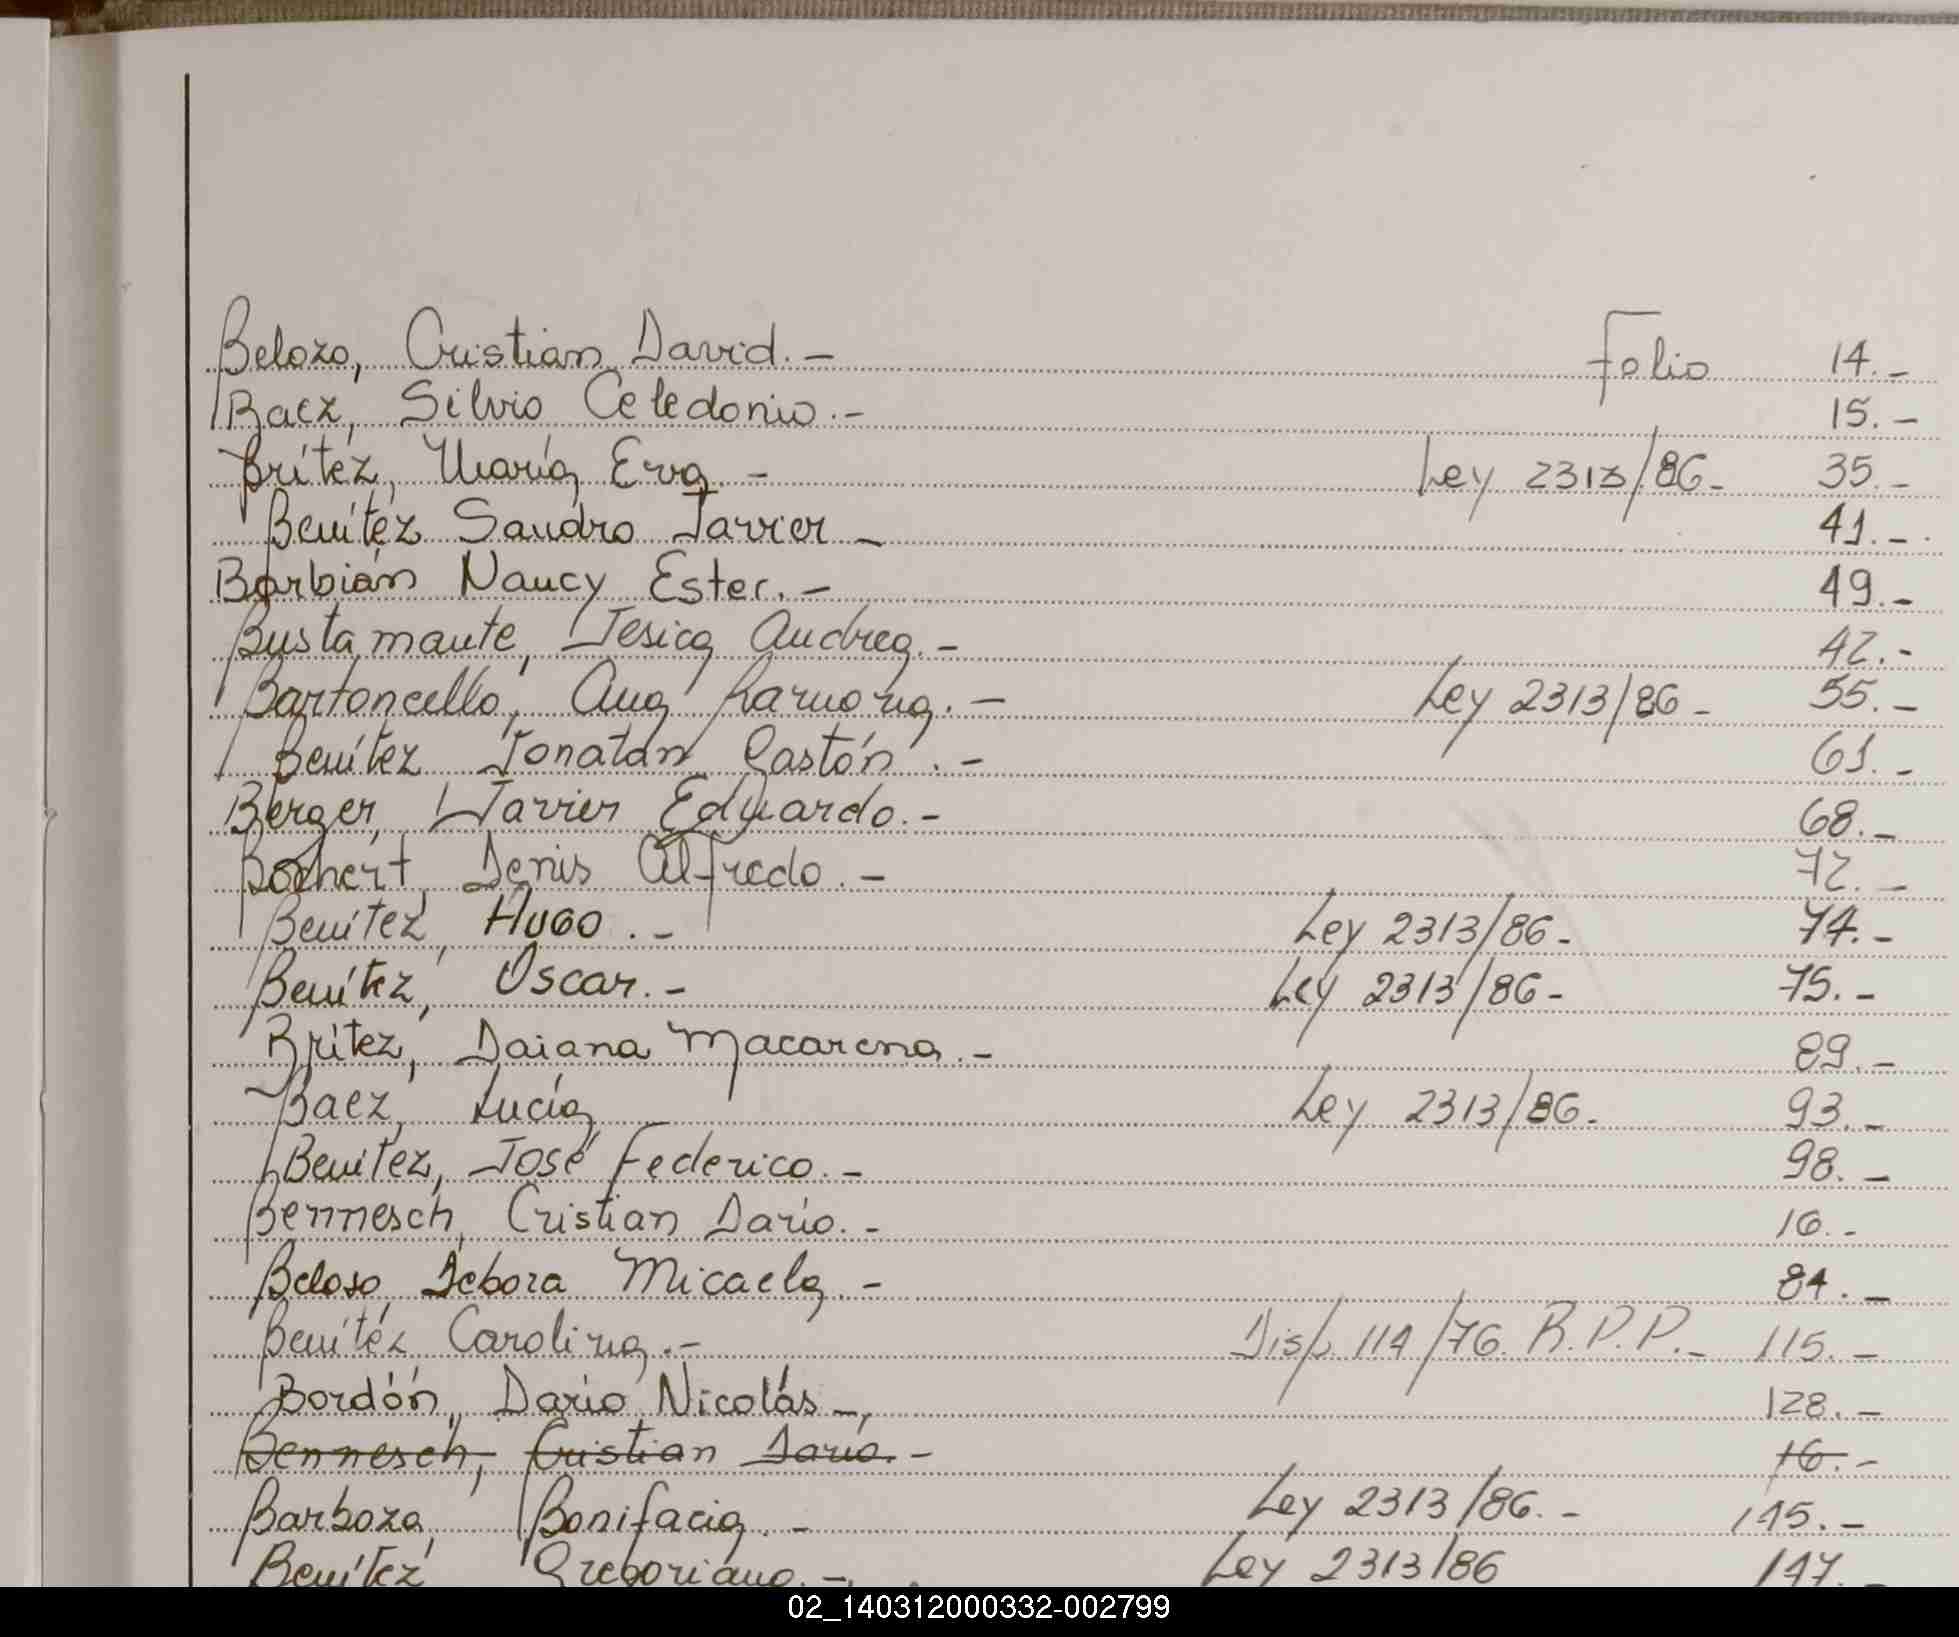 Belozo, Cristian David.- Folio 14.-
Baez, Silvio Celedonio.- 15.-
Brítez, María Eva.- Ley 2313/86- 35.-
Benítez Sandro Javier - 41.-
Barbián Nancy Ester.- 49.-
Bustamante, Jesica Andrea.- 42.-
Bartoncello, Ana Ramona.- Ley 2313/86- 55.-
Benítez Jonatan Gastón.- 61.-
Berger, Javier Eduardo.- 68.-
Bochert, Denis Alfredo.- 72.-
Benítez, Hugo.- Ley 2313/86- 74.-
Benítez, Oscar.- Ley 2313/86- 75.-
Brítez, Daiana Macarena.- 89.-
Baez, Lucía Ley 2313/86- 93.-
Benítez, José Federico.- 98.-
Bennesch, Cristian Darío.- 16.-
Beloso, Débora Micaela.- 84.-
Benítez Carolina.- Disp. 114/76 R.P.P.- 115.-
Bordón, Darío Nicolás-, 128.-
Bennesch, Cristian Darío.- 16.-
Barboza, Bonifacia.- Ley 2313/86.- 145.-
Benítez Gregoriano.- Ley 2313/86 147.-
02_140312000332-002799